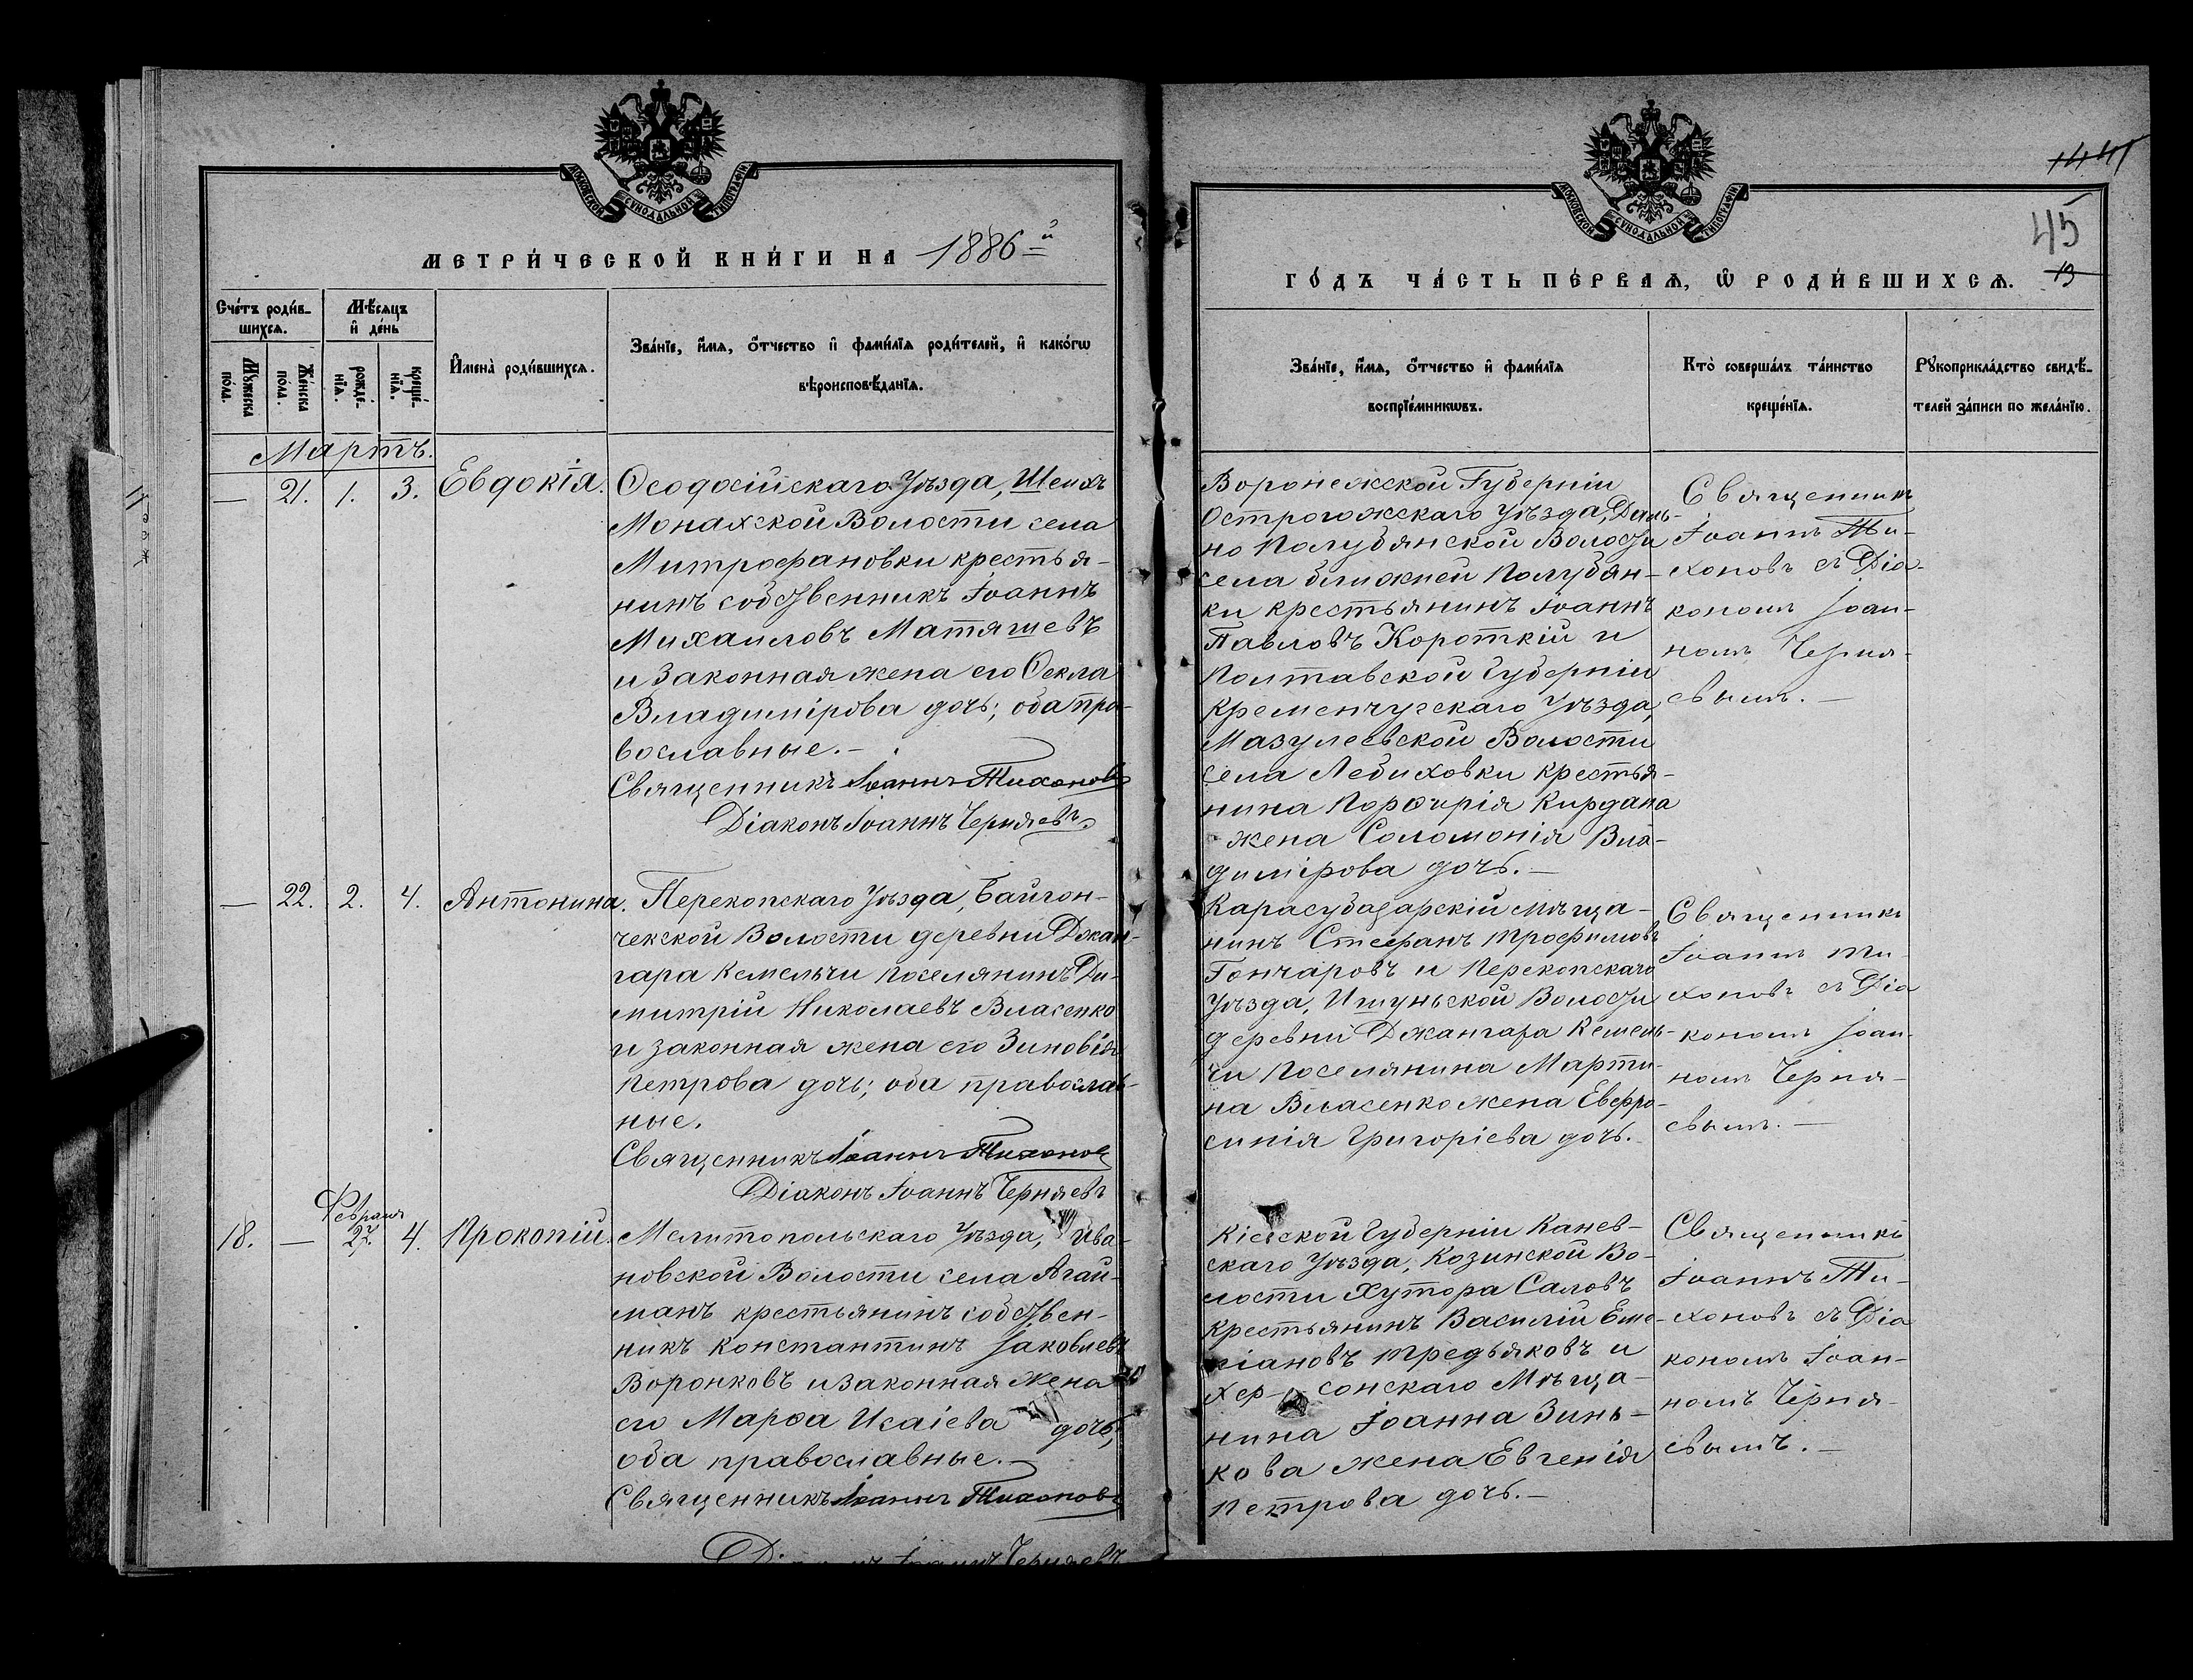 МОСКОВСКОЙ СѴНОДАЛЬНОЙ ТИПОГРАФІИ
МЕТРИ́ЧЕСКОЙ КНИ́ГИ НА 1886й
Сче́тъ роди́в-
шихсѧ.
Мѣ́сѧцъ
и҆ де́нь
Мꙋ́жеска
по́ла.
Же́нска
по́ла.
рожде́-
нїѧ.
креще́-
нїѧ.
И҆мена̀ роди́вшихсѧ.
Зва́нїе, и҆́мѧ, ѻ҆́тчество и҆ фами́лїѧ роди́телей, и҆ како́гѡ
вѣроисповѣ́данїѧ.
Мартъ.
— 21. 1. 3. Евдокія.
Ѳеодосійскаго Уѣзда, Шеихъ
Монахской Волости села
Митрофановки крестья-
нинъ собственникъ Іоаннъ
Михаиловъ Матяшевъ
и законная жена его Ѳекла
Владимірова дочь; оба пра-
вославные. —
Священникъ Іоаннъ Тихоновъ
Діаконъ Іоаннъ Черняевъ
— 22. 2. 4. Антонина.
Перекопскаго Уѣзда, Байгон-
чекской Волости деревни Джан-
гара Кемельчи поселянинъ Ди-
митрій Николаевъ Власенко
и законная жена его Зиновія
Петрова дочь; оба православ-
ные.
Священникъ Іоаннъ Тихоновъ
Діаконъ Іоаннъ Черняевъ
Февраля
18. — 27. 4. Прокопій.
Мелитопольскаго Уѣзда, Ива-
новской Волости села Агай-
манъ крестьянинъ собствен-
никъ Константинъ Іаковлевъ
Воронковъ и законная жена
его Марѳа Исаіева дочь,
оба православные. —
Священникъ Іоаннъ Тихоновъ
Діаконъ Іоаннъ Черняевъ
МОСКОВСКОЙ СѴНОДАЛЬНОЙ ТИПОГРАФІИ
45
13
ГО́ДЪ ЧА́СТЬ ПЕ́РВАѦ, Ѡ҆ РОДИ́ВШИХСѦ.
Зва́нїе, и҆́мѧ, ѻ҆́тчество и҆ фами́лїѧ
воспрїе́мникѡвъ.
Кто̀ соверша́лъ та́инство
креще́нїѧ.
Рꙋкоприкла́дство свидѣ́-
телей за́писи по жела́нїю.
Воронежской Губерніи
Острогожскаго Уѣзда, Даль-
но Полубянской Волости
села ближней Полубян-
ки крестьянинъ Іоаннъ
Павловъ Короткій и
Полтавской Губерніи
Кременчугскаго Уѣзда,
Мазулевской Волости
села Лебиховки крестья-
нина Порфирія Кирдана
жена Соломонія Вла-
димірова дочь. —
Священникъ
Іоаннъ Ти-
хоновъ съ Діа-
кономъ Іоан-
номъ Черня-
евымъ. —
Карасубазарскій мѣща-
нинъ Стефанъ Трофимовъ
Гончаровъ и Перекопскаго
Уѣзда, Ишуньской Волости
деревни Джангара Кемель-
чи поселянина Марти-
на Власенко жена Евфро-
синія Григоріева дочь. —
Священникъ
Іоаннъ Ти-
хоновъ съ Діа
кономъ Іоан-
номъ Черня-
евымъ. —
Кіевской Губерніи Канев-
скаго Уѣзда, Козинской Во-
лости Хутора Саловъ
крестьянинъ Василій Еме-
ліановъ Тредьяковъ и
Хер- сонскаго Мѣща-
нина Іоанна Зинь-
кова жена Евгенія
Петрова дочь. —
Священникъ
Іоаннъ Ти-
хоновъ съ Діа
кономъ Іоан-
номъ Черня-
евымъ. —